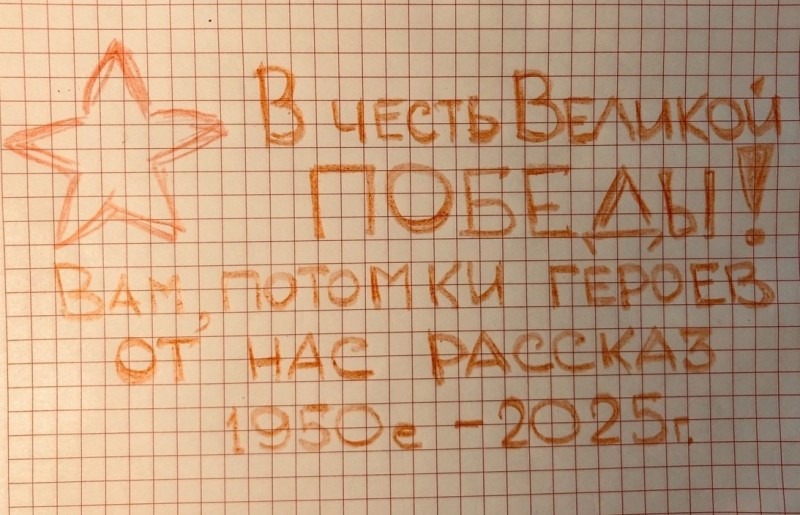 В честь Великой
ПОБЕДЫ!
Вам, потомки героев
от нас рассказ
1950е - 2025г.